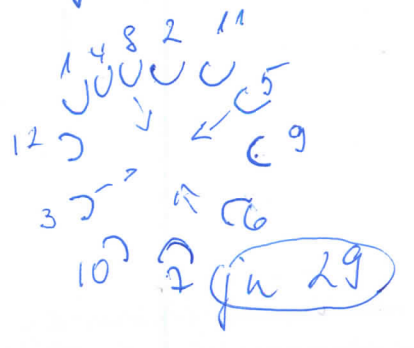 1 4 8 2 11
5
12 9
3 6
10 7 gn 29